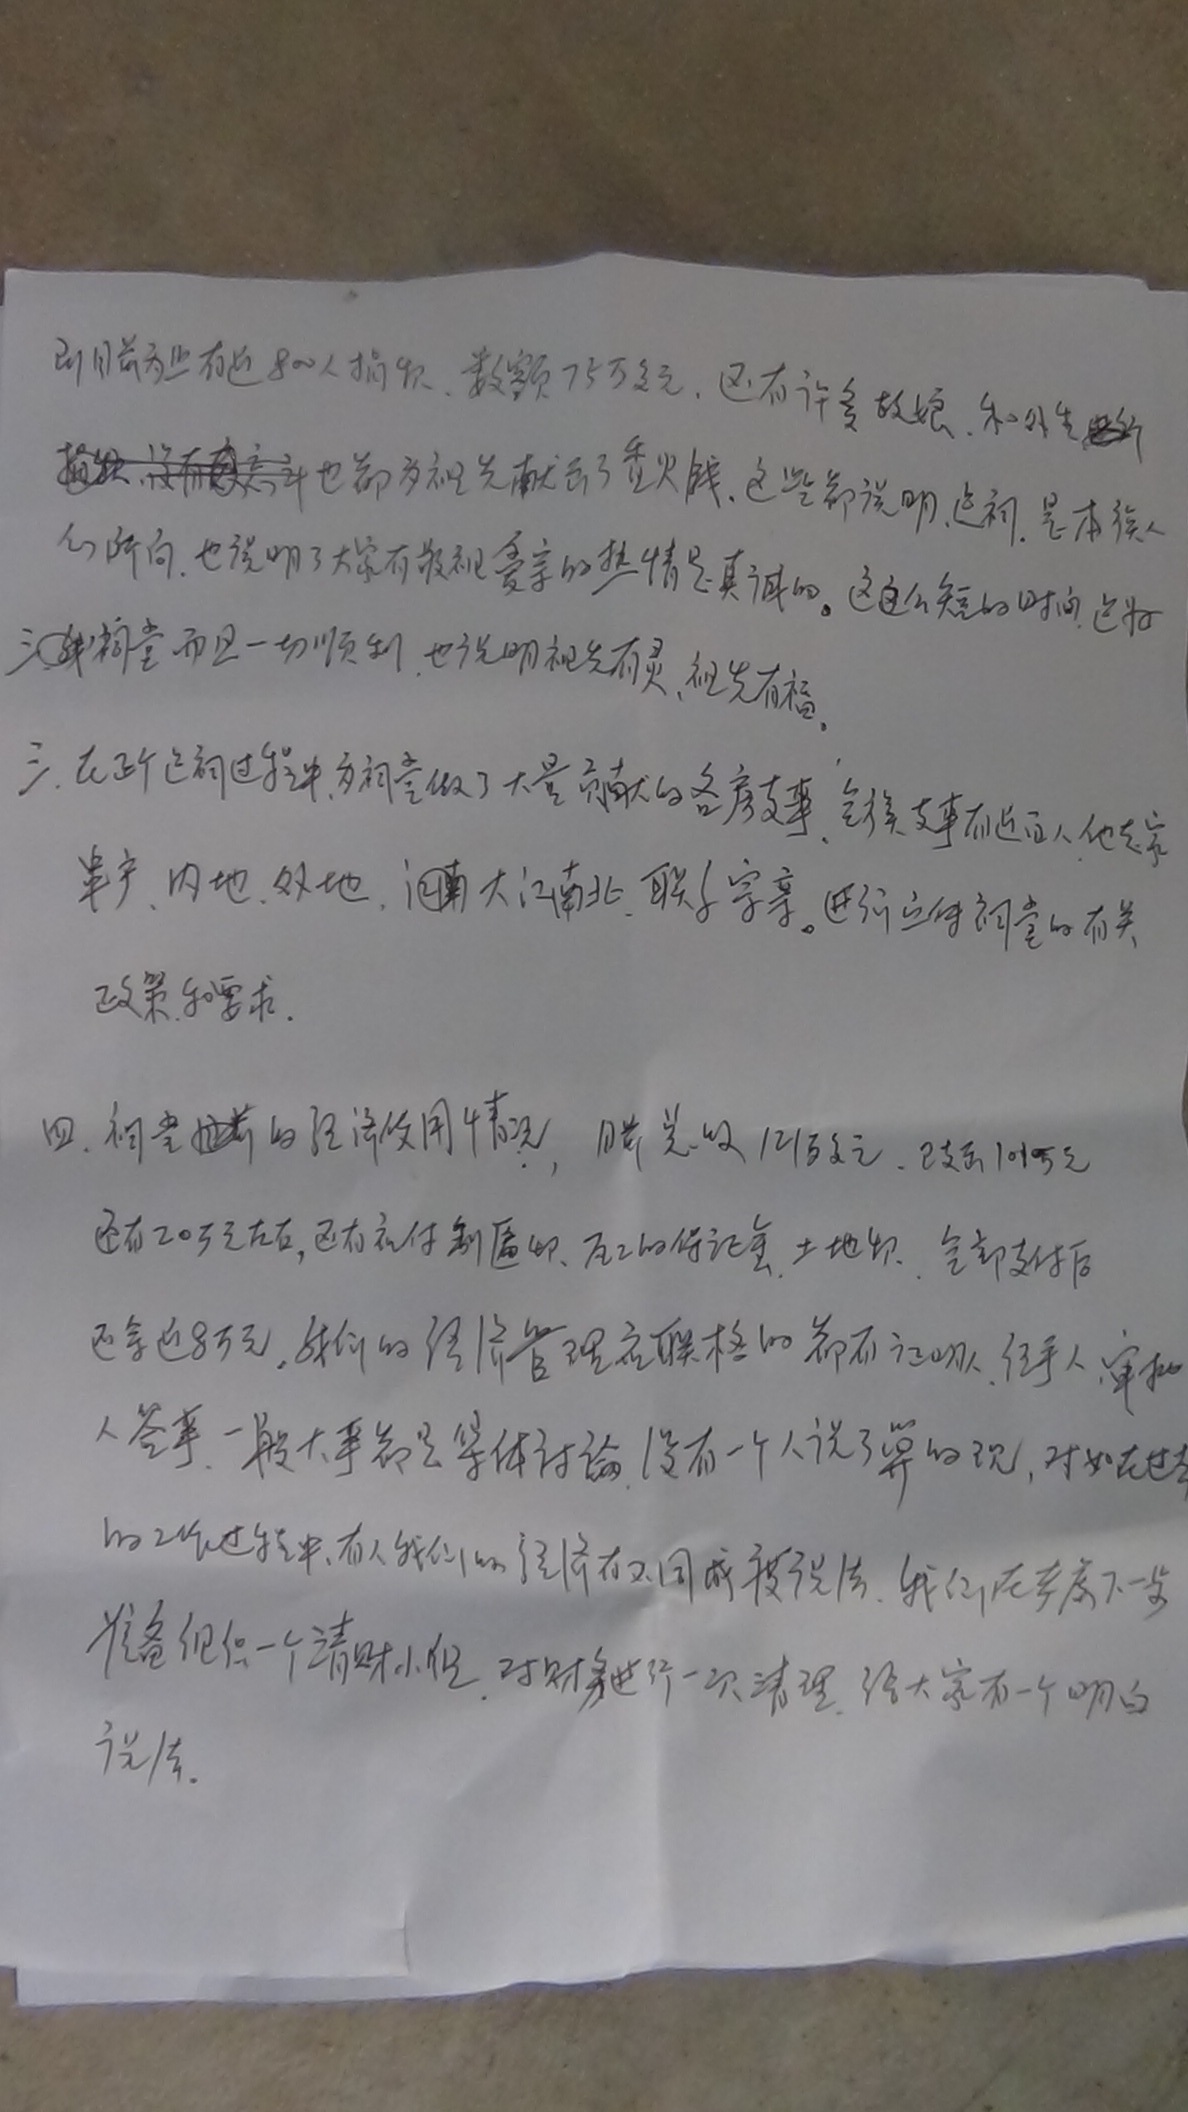 到目前为止有近800人捐款、数额75万多元，还有许多姑娘、和外生
也都为祖先献出了香火钱、这些都说明、建祠、是本族人
心所向、也说明了大家有敬祖爱亲的热情是真诚的。这么短的时间建好
祠堂而且一切顺利、也说明祖先有灵、祖先有福。
三、在正个建祠过程中、为祠堂做了大量贡献的各房支事、全族支事有近百人、他
内地、外地、大江南北、联系宗亲。进行宣传祠堂的有关
政策和要求.
四、祠堂的经济使用情况，目前总收121万多元、已支出
还有20万元左右，还有应付制匾款、石工的保证金、土地款、全部支付后
还余近8万元。我们的经济管理是严格的都有证明人、经手人、审批
人签字、一般大事都是集体讨论、没有一个人说了算的现，对如在过去
的工作过程中、有人我们的经济有不同或说法、我们在年度下一步
准备组织一个清财小组、对财务进行一次清理、给大家有一个明白
说法.